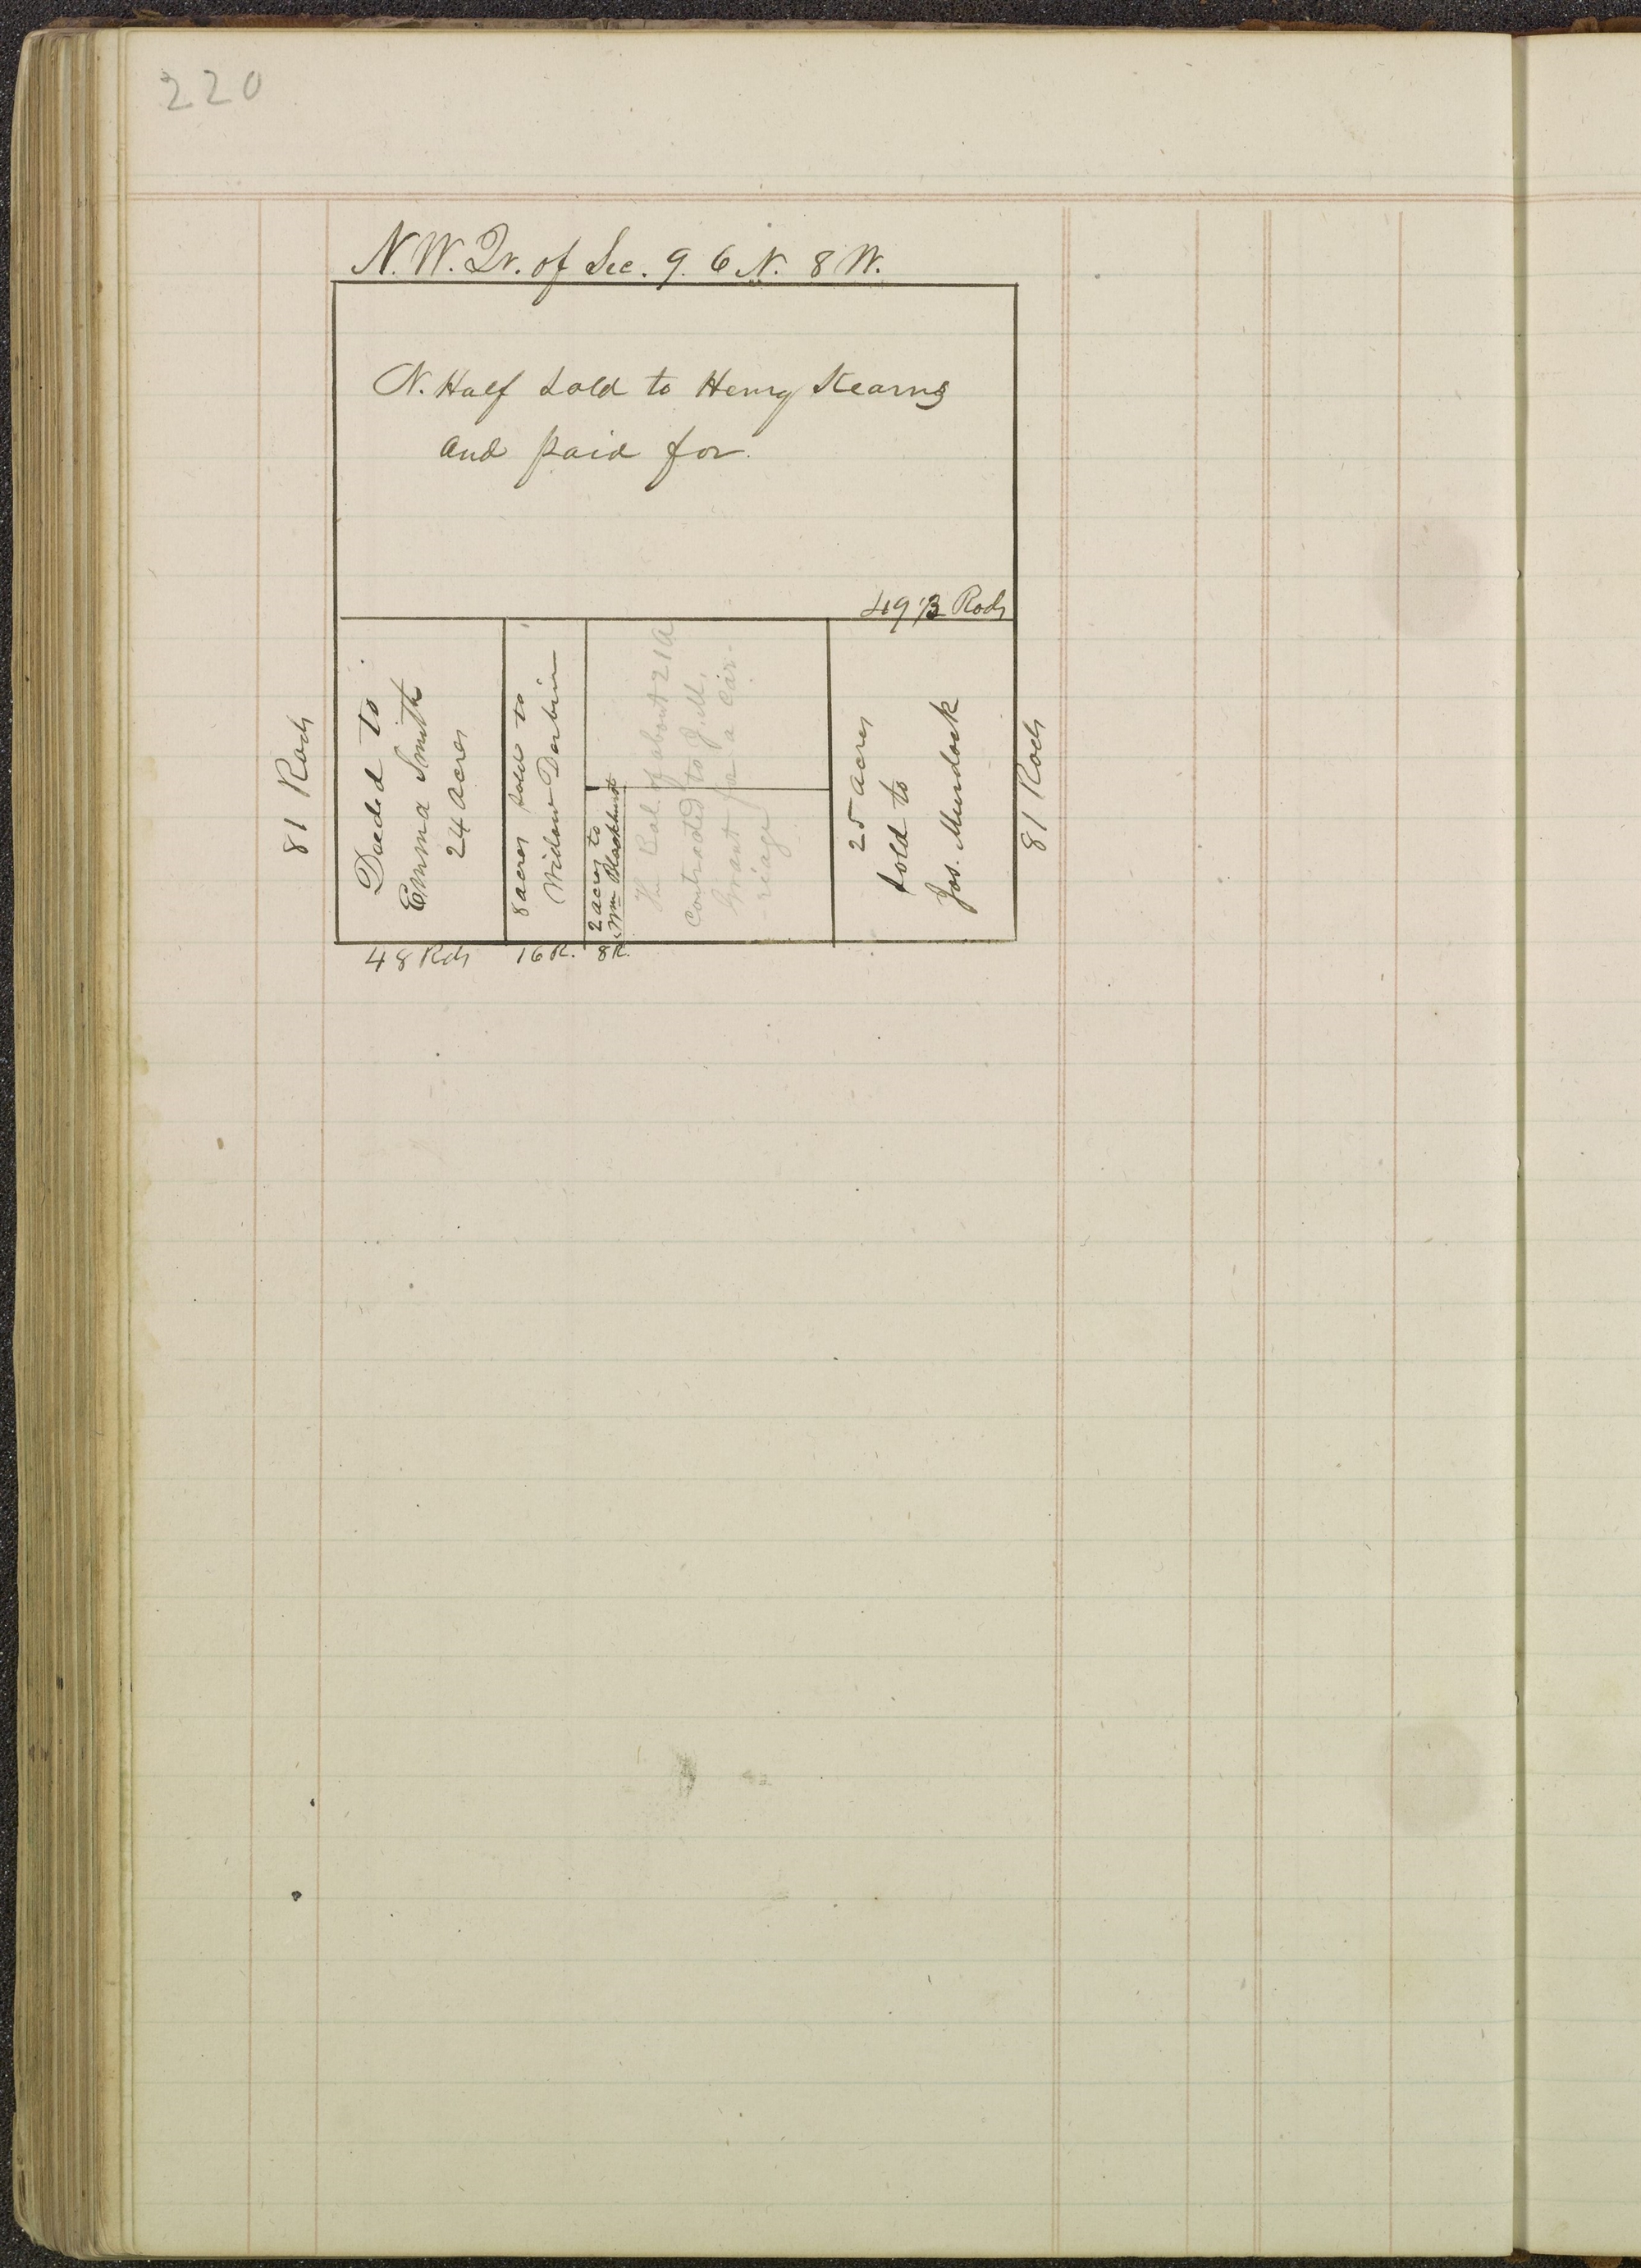 220
N.W. Qr. of Sec. 9. 6 N. 8 W.
N. Half sold to Henry Stearns
and paid for.
49 1/3 Rods
81 Rods
Deeded to
Emma Smith
24 acres
8 acres sold to
Widow Durbin
2 acres to
Wm Blackhurst
The Bal. of about 21 A
contracted to J. M.
Grant for a car-
-riage
25 acres
sold to
Jos. Murdock
81 Rods
48 Rds
16 R.
8 R.